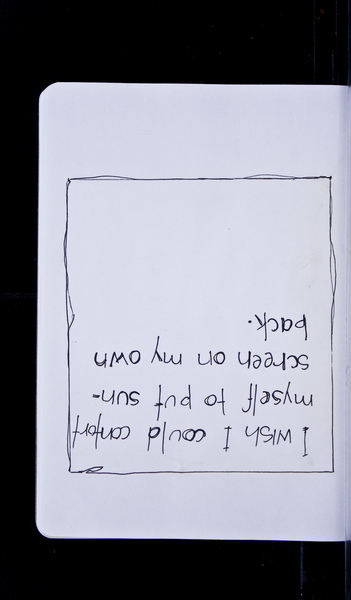 I wish I could contort
myself to put sun-
screen on my own
back.